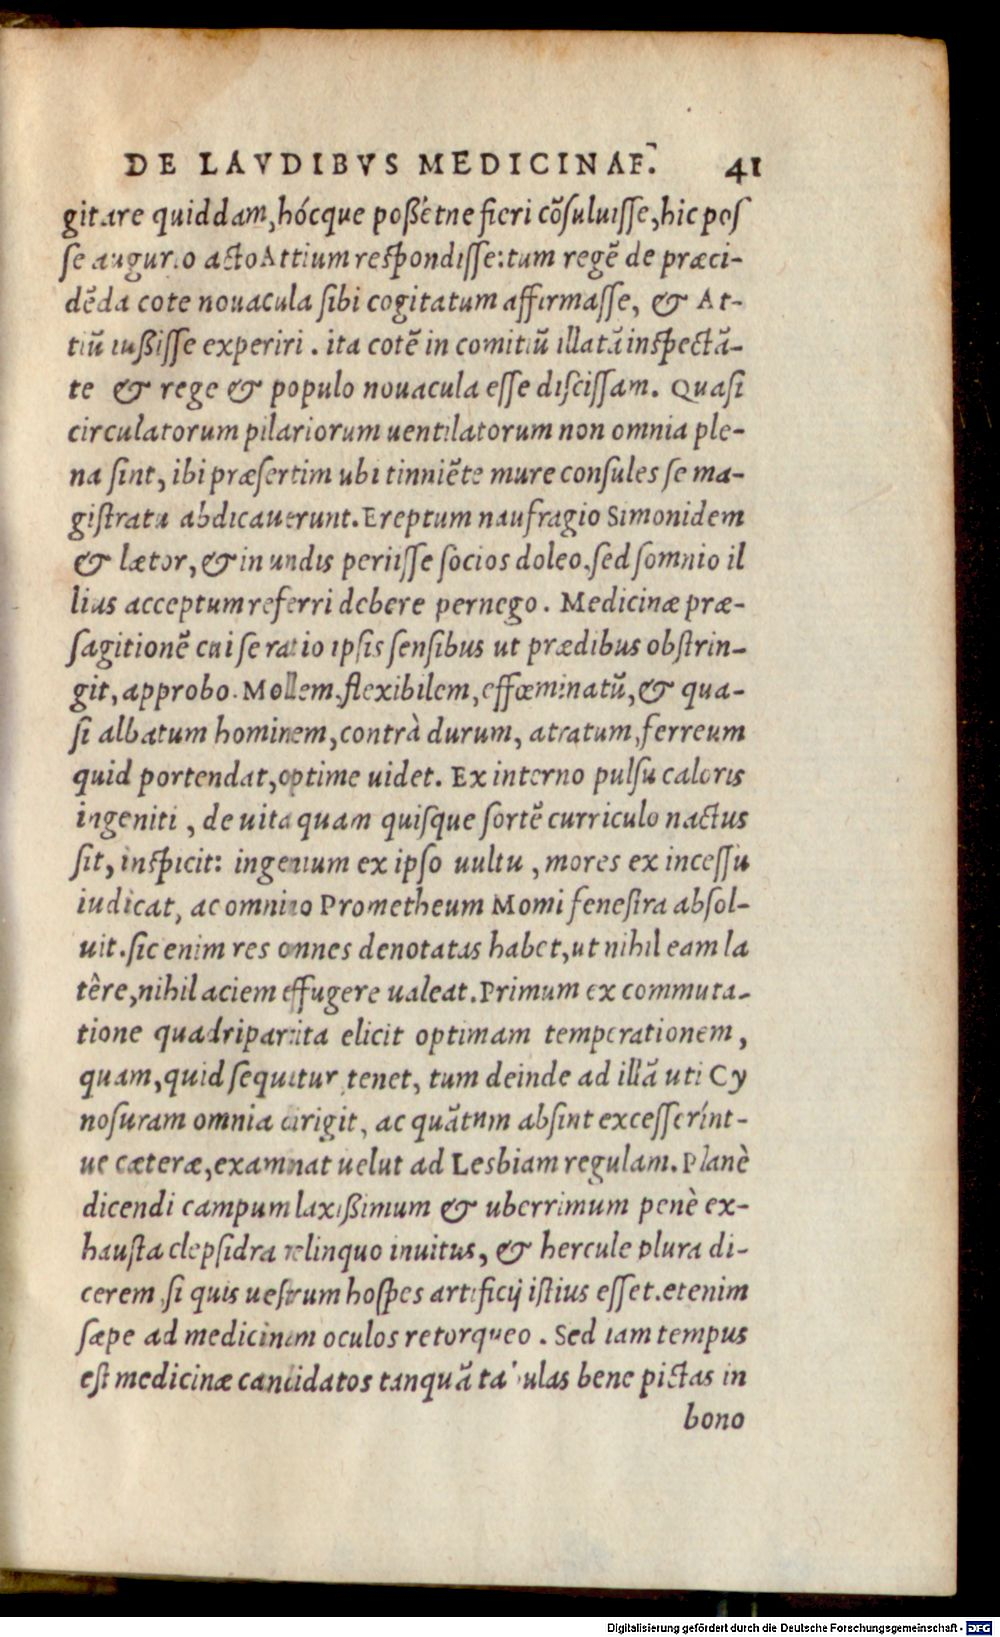 DE LAVDIBVS MEDICINAE. 41
gitare quiddam, hócque poßétne fieri cõſuluiſſe, hic poſ
ſe augurio acto Attium reſpondiſſe: tum regẽ de præci-
dẽda cote nouacula ſibi cogitatum affirmaſſe, & At-
tiũ iußiſſe experiri. ita cotẽ in comitiũ illatã inſpectã-
te & rege & populo nouacula eſſe diſciſſam. Quaſi
circulatorum pilariorum uentilatorum non omnia ple-
na ſint, ibi præſertim ubi tinniẽte mure conſules ſe ma-
giſtratu abdicauerunt. Ereptum naufragio Simonidem
& lætor, & in undis periiſſe ſocios doleo, ſed ſomnio il
lius acceptum referri debere pernego. Medicinæ præ-
ſagitionẽ cui ſe ratio ipſis ſenſibus ut prædibus obſtrin-
git, approbo. Mollem, flexibilem, effœminatũ, & qua-
ſi albatum hominem, contrà durum, atratum, ferreum
quid portendat, optime uidet. Ex interno pulſu caloris
ingeniti, de uita quam quiſque ſortẽ curriculo nactus
ſit, inſpicit: ingenium ex ipſo uultu, mores ex inceſſu
iudicat, ac omnino Prometheum Momi feneſtra abſol-
uit. ſic enim res omnes denotatas habet, ut nihil eam la
têre, nihil aciem effugere ualeat. Primum ex commuta-
tione quadripartita elicit optimam temperationem,
quam, quid ſequitur, tenet, tum deinde ad illã uti Cy
noſuram omnia dirigit, ac quãtum abſint exceſſerínt-
ue cæteræ, examinat uelut ad Lesbiam regulam. Planè
dicendi campum laxißimum & uberrimum penè ex-
hauſta clepſidra relinquo inuitus, & hercule plura di-
cerem, ſi quis ueſtrum hoſpes artificij iſtius eſſet. etenim
ſæpe ad medicinam oculos retorqueo. Sed iam tempus
eſt medicinæ candidatos tanquã tabulas bene pictas in
bono
Digitalisierung gefördert durch die Deutsche Forschungsgemeinschaft - DFG